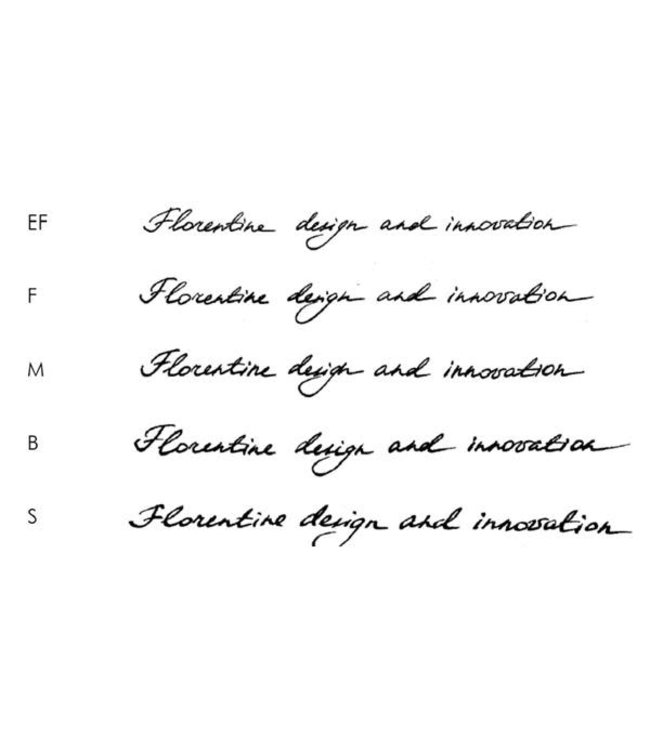 EF Florentine design and innovation
F Florentine design and innovation
M Florentine design and innovation
B Florentine design and innovation
S Florentine design and innovation